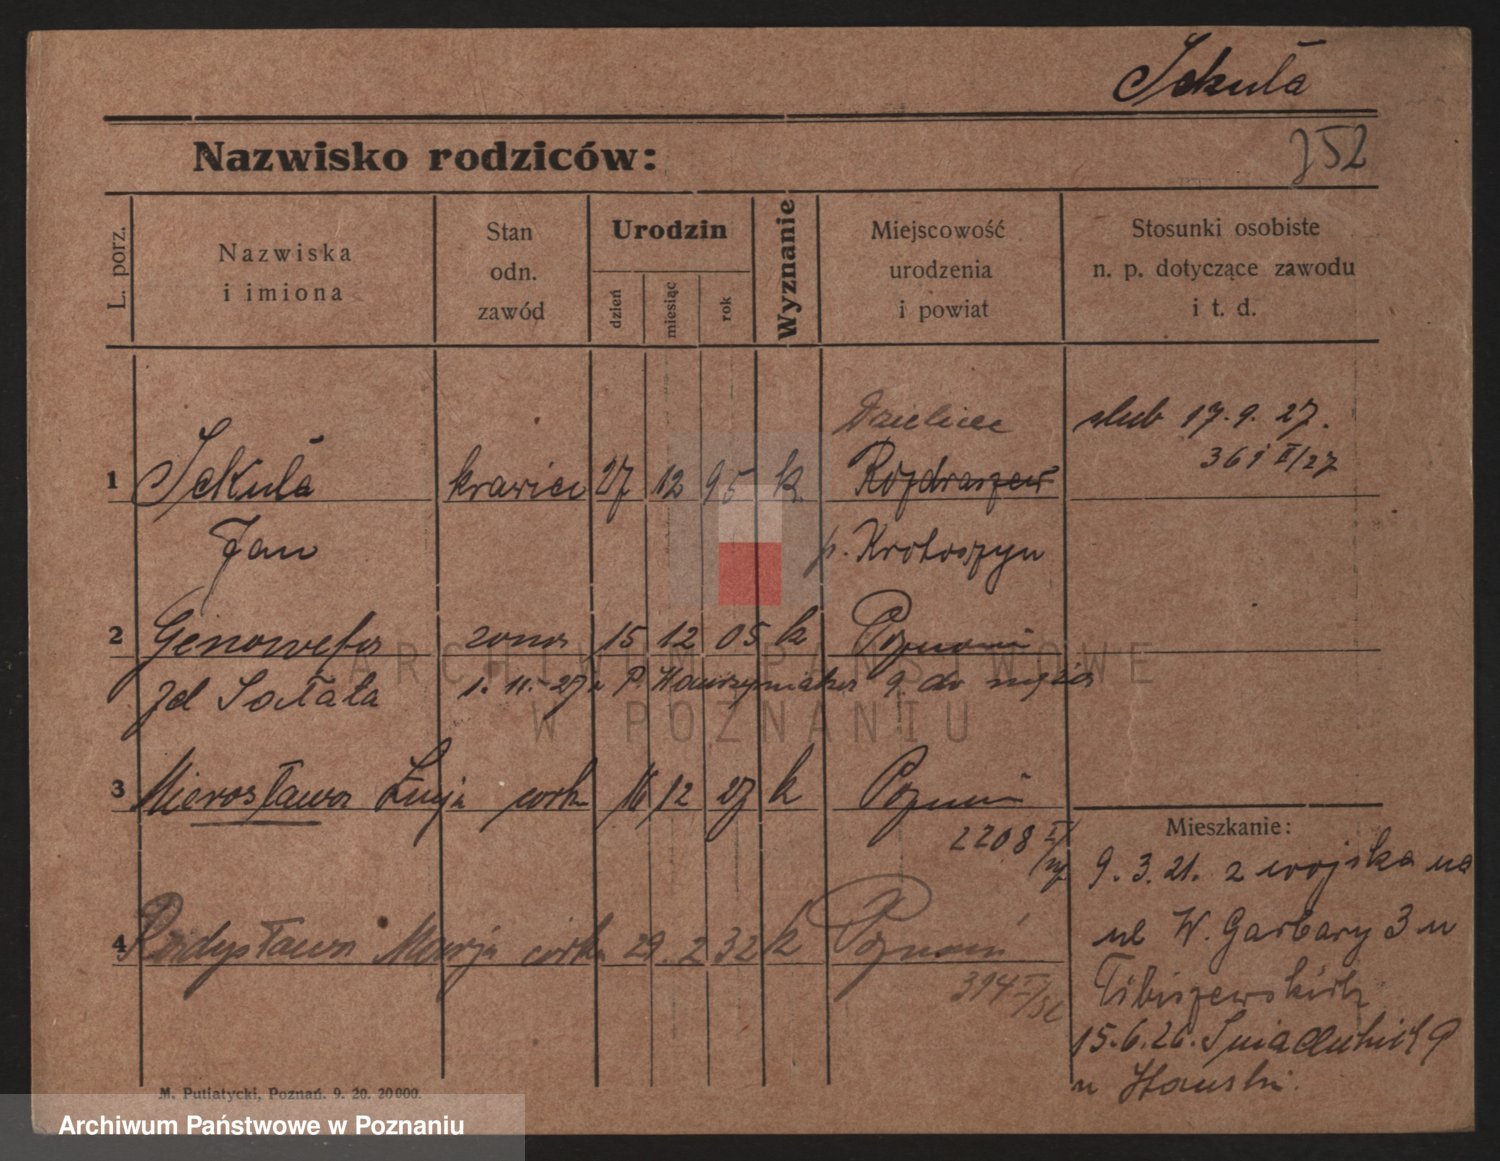 Sekuła
752
Nazwisko rodziców:
L. porz.
Nazwiska
i imiona
Stan
odn.
zawód
Urodzin
dzień
miesiąc
rok
Wyznanie
Miejscowość
urodzenia
i powiat
Stosunki osobiste
n. p. dotyczące zawodu
i t. d.
1 Sekuła krawiec 27 12 95 k Rozdraszew
ślub 17.9.27.
361 II/27
Jan p. Krotoszyn
2 Genowefa żona 15 12 05 k Poznań
zd Sałata 1.11.27 P. 9 do męża
3 Mirosława Łucja córka 16 12 27 k Poznań
2208
4 Marja córka 29 2 32 k Poznań
314
Mieszkanie:
9.3.21. z wojska na
ul W. Garbary 3 u
15.6.26. 9
u
M. Putiatycki, Poznań. 9. 20. 20000.
ARCHIWUM PAŃSTWOWE
W POZNANIU
Archiwum Państwowe w Poznaniu